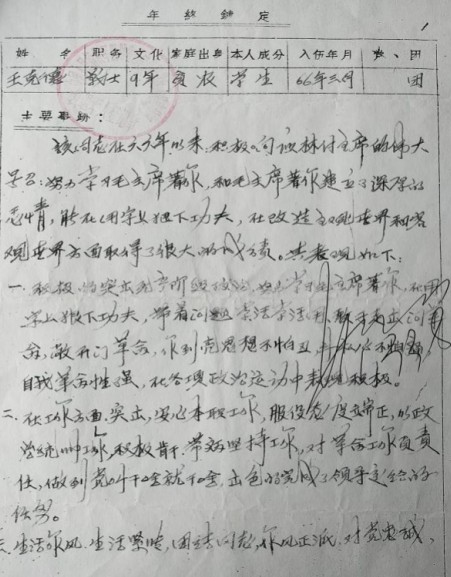 年终鉴定
1
姓 名 职务 文化 家庭出身 本人成分 入伍年月 党、团
王克德 战士 9年 贫农 学生 66年三月 团
主要事跡：
该同志在六六年以来，积极响应林付主席的伟大
号召：努力学习毛主席著作，和毛主席著作建立了深厚的
感情，能在用字上狠下功夫，在改造主观世界和客
观世界方面取得了很大的成绩。其表现如下：
一、积极的突出无产阶级政治，努力学习毛主席著作，在用
字上狠下功夫，带着问题活学活用，敢于
命，敢于门革命，作到亮思想不怕丑，
自我革命性强，在各项政治运动中表现积极。
二、在工作方面突出，安心本职工作，服役态度端正，以政
治统帅工作，积极肯干，带病坚持工作，对革命工作负责
任，做到党叫干啥就干啥，出色的完成了领导交给的
任务。
三、生活作风，生活坚苦，团结同志，作风正派，对党忠诚，